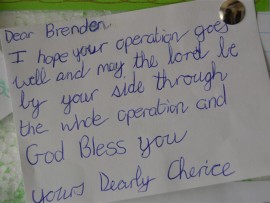 Dear Brenden
I hope your operation goes
well and may the lord be
by your side through
the whole operation and
God Bless you
yours Dearly Cherice